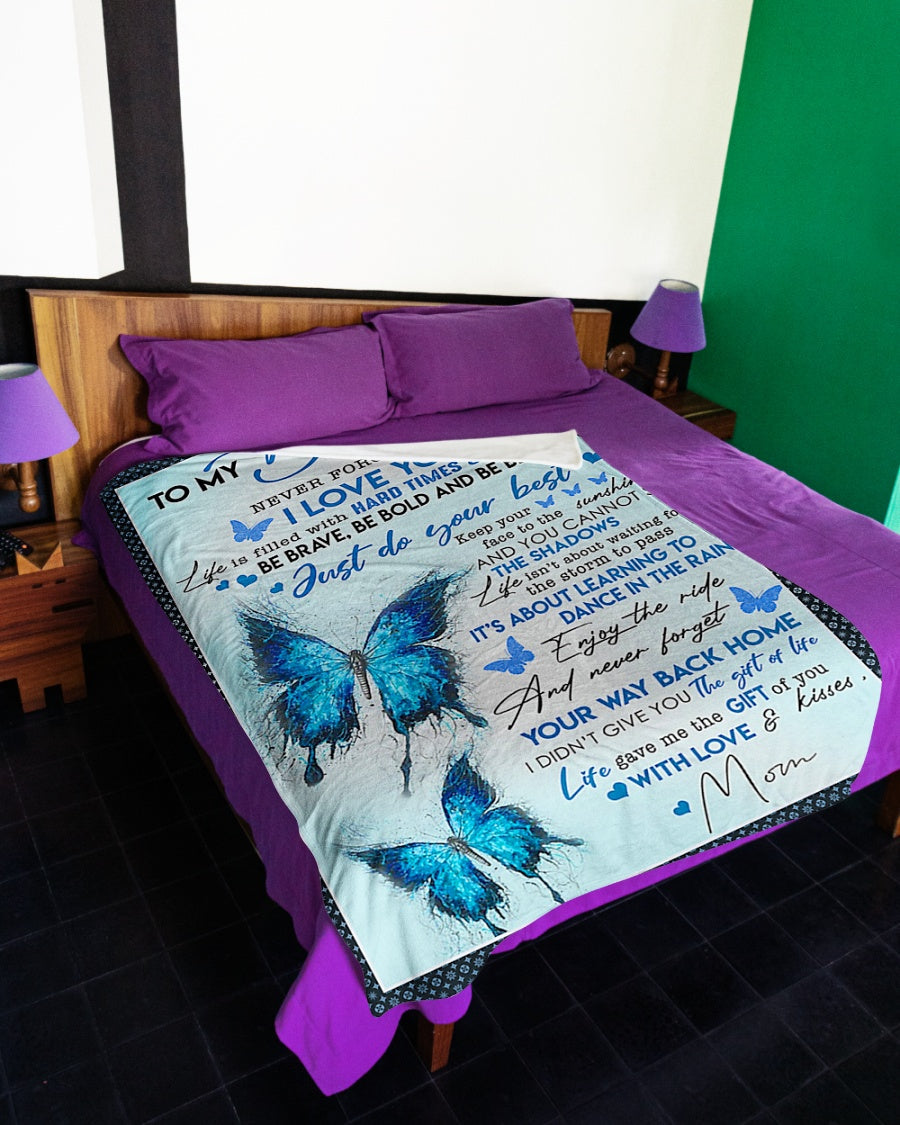 TO MY
NEVER
I LOVE
Life is filled with HARD TIMES
BE BRAVE, BE BOLD AND BE
Just do your best
Keep your
face to the
AND YOU CANNOT
THE SHADOWS
Life isn't about waiting
the storm to pass
IT'S ABOUT LEARNING TO
DANCE IN THE RAIN
Enjoy the ride
And never forget
YOUR WAY BACK HOME
I DIDN'T GIVE YOU The gift of life
Life gave me the GIFT of you
WITH LOVE & kisses,
Mom